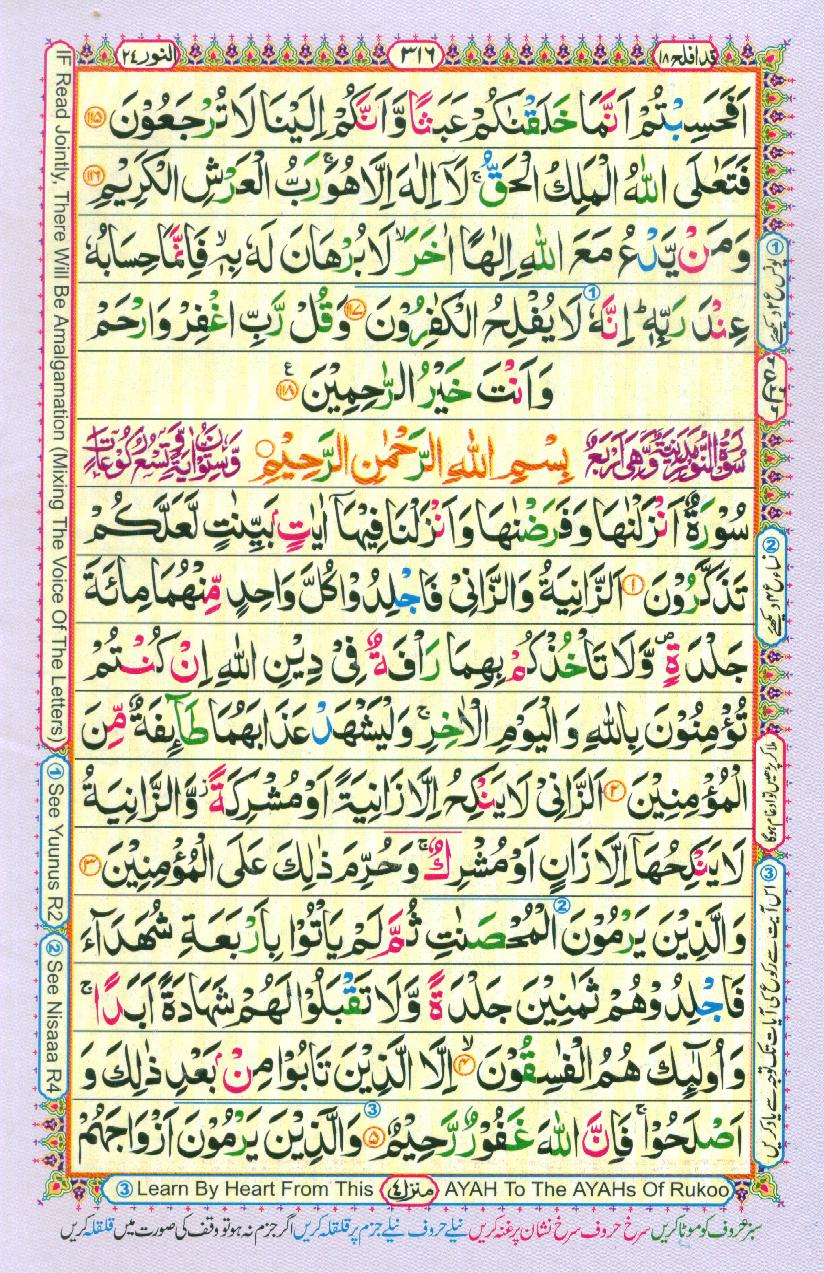 قد افلح ١٨
٣١٦
النور ٢٤
اَفَحَسِبْتُمْ اَنَّمَا خَلَقْنٰكُمْ عَبَثًا وَّاَنَّكُمْ اِلَيْنَا لَا تُرْجَعُوْنَ ﴿١١٥﴾
فَتَعٰلَى اللّٰهُ الْمَلِكُ الْحَقُّ ۚ لَاۤ اِلٰهَ اِلَّا هُوَ ۚ رَبُّ الْعَرْشِ الْكَرِيْمِ ﴿١١٦﴾
وَمَنْ يَّدْعُ مَعَ اللّٰهِ اِلٰهًا اٰخَرَ ۙ لَا بُرْهَانَ لَهٗ بِهٖ ۙ فَاِنَّمَا حِسَابُهٗ
عِنْدَ رَبِّهٖ ؕ اِنَّهٗ لَا يُفْلِحُ الْكٰفِرُوْنَ ﴿١١٧﴾ وَقُلْ رَّبِّ اغْفِرْ وَارْحَمْ
وَاَنْتَ خَيْرُ الرّٰحِمِيْنَ ﴿١١٨﴾
سُوْرَةُ النُّوْرِ مَدَنِيَّةٌ وَّهِيَ اَرْبَعٌ بِسْمِ اللّٰهِ الرَّحْمٰنِ الرَّحِيْمِ وَّسِتُّوْنَ اٰيَةً وَّتِسْعُ رُكُوْعَاتٍ
سُوْرَةٌ اَنْزَلْنٰهَا وَفَرَضْنٰهَا وَاَنْزَلْنَا فِيْهَاۤ اٰيٰتٍۭ بَيِّنٰتٍ لَّعَلَّكُمْ
تَذَكَّرُوْنَ ﴿١﴾ اَلزَّانِيَةُ وَالزَّانِيْ فَاجْلِدُوْا كُلَّ وَاحِدٍ مِّنْهُمَا مِائَةَ
جَلْدَةٍ ۪ وَّلَا تَاْخُذْكُمْ بِهِمَا رَاْفَةٌ فِيْ دِيْنِ اللّٰهِ اِنْ كُنْتُمْ
تُؤْمِنُوْنَ بِاللّٰهِ وَالْيَوْمِ الْاٰخِرِ ۚ وَلْيَشْهَدْ عَذَابَهُمَا طَآئِفَةٌ مِّنَ
الْمُؤْمِنِيْنَ ﴿٢﴾ اَلزَّانِيْ لَا يَنْكِحُ اِلَّا زَانِيَةً اَوْ مُشْرِكَةً ؗ وَّالزَّانِيَةُ
لَا يَنْكِحُهَاۤ اِلَّا زَانٍ اَوْ مُشْرِكٌ ۚ وَحُرِّمَ ذٰلِكَ عَلَى الْمُؤْمِنِيْنَ ﴿٣﴾
وَالَّذِيْنَ يَرْمُوْنَ الْمُحْصَنٰتِ ثُمَّ لَمْ يَاْتُوْا بِاَرْبَعَةِ شُهَدَآءَ
فَاجْلِدُوْهُمْ ثَمٰنِيْنَ جَلْدَةً وَّلَا تَقْبَلُوْا لَهُمْ شَهَادَةً اَبَدًا ۚ
وَاُولٰٓئِكَ هُمُ الْفٰسِقُوْنَ ﴿٤﴾ اِلَّا الَّذِيْنَ تَابُوْا مِنْۢ بَعْدِ ذٰلِكَ وَ
اَصْلَحُوْا ۚ فَاِنَّ اللّٰهَ غَفُوْرٌ رَّحِيْمٌ ﴿٥﴾ وَالَّذِيْنَ يَرْمُوْنَ اَزْوَاجَهُمْ
① یونس ع ٢ دیکھئے
② نساء ع ٤ دیکھئے
ملا کر پڑھیں تو ادغام ہوگا
③ اس آیت سے رکوع کی آیات تک توجہ سے یاد کریں
IF Read Jointly, There Will Be Amalgamation (Mixing The Voice Of The Letters)
① See Yuunus R2
② See Nisaaa R4
③ Learn By Heart From This منزل ٤ AYAH To The AYAHs Of Rukoo
سبز حروف کو موٹا کریں سرخ حروف سرخ نشان پر غنہ کریں نیلے حروف نیلے جزم پر قلقلہ کریں اگر جزم نہ ہو تو وقف کی صورت میں قلقلہ کریں